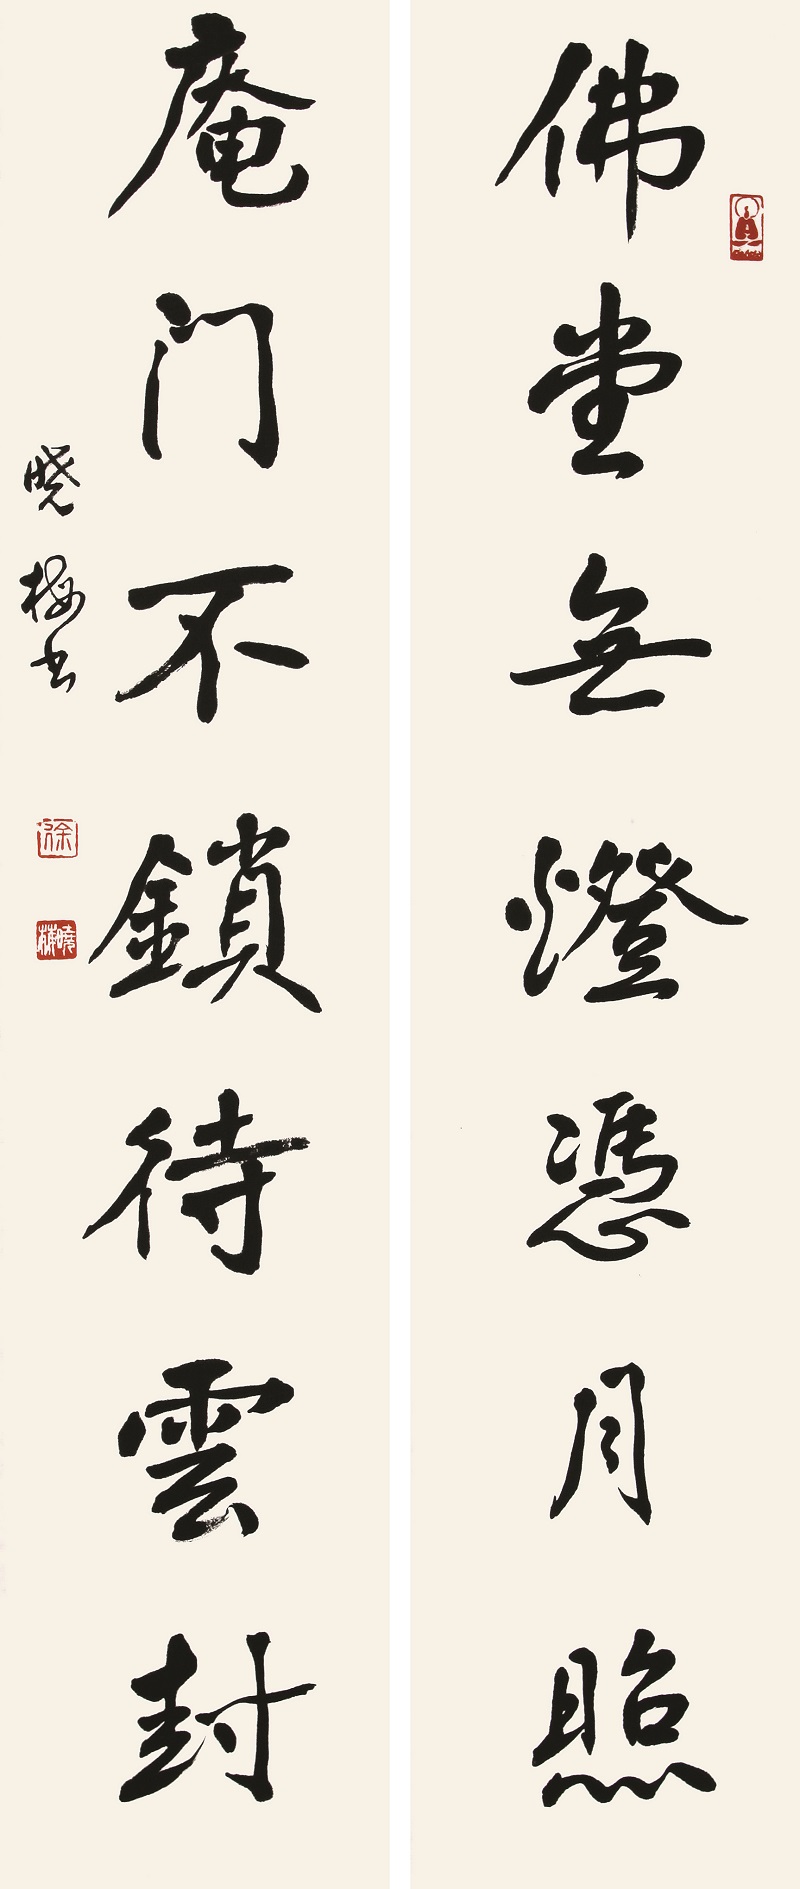 佛堂無燈憑月照
庵门不鎖待雲封
晓梅书
徐
曉梅